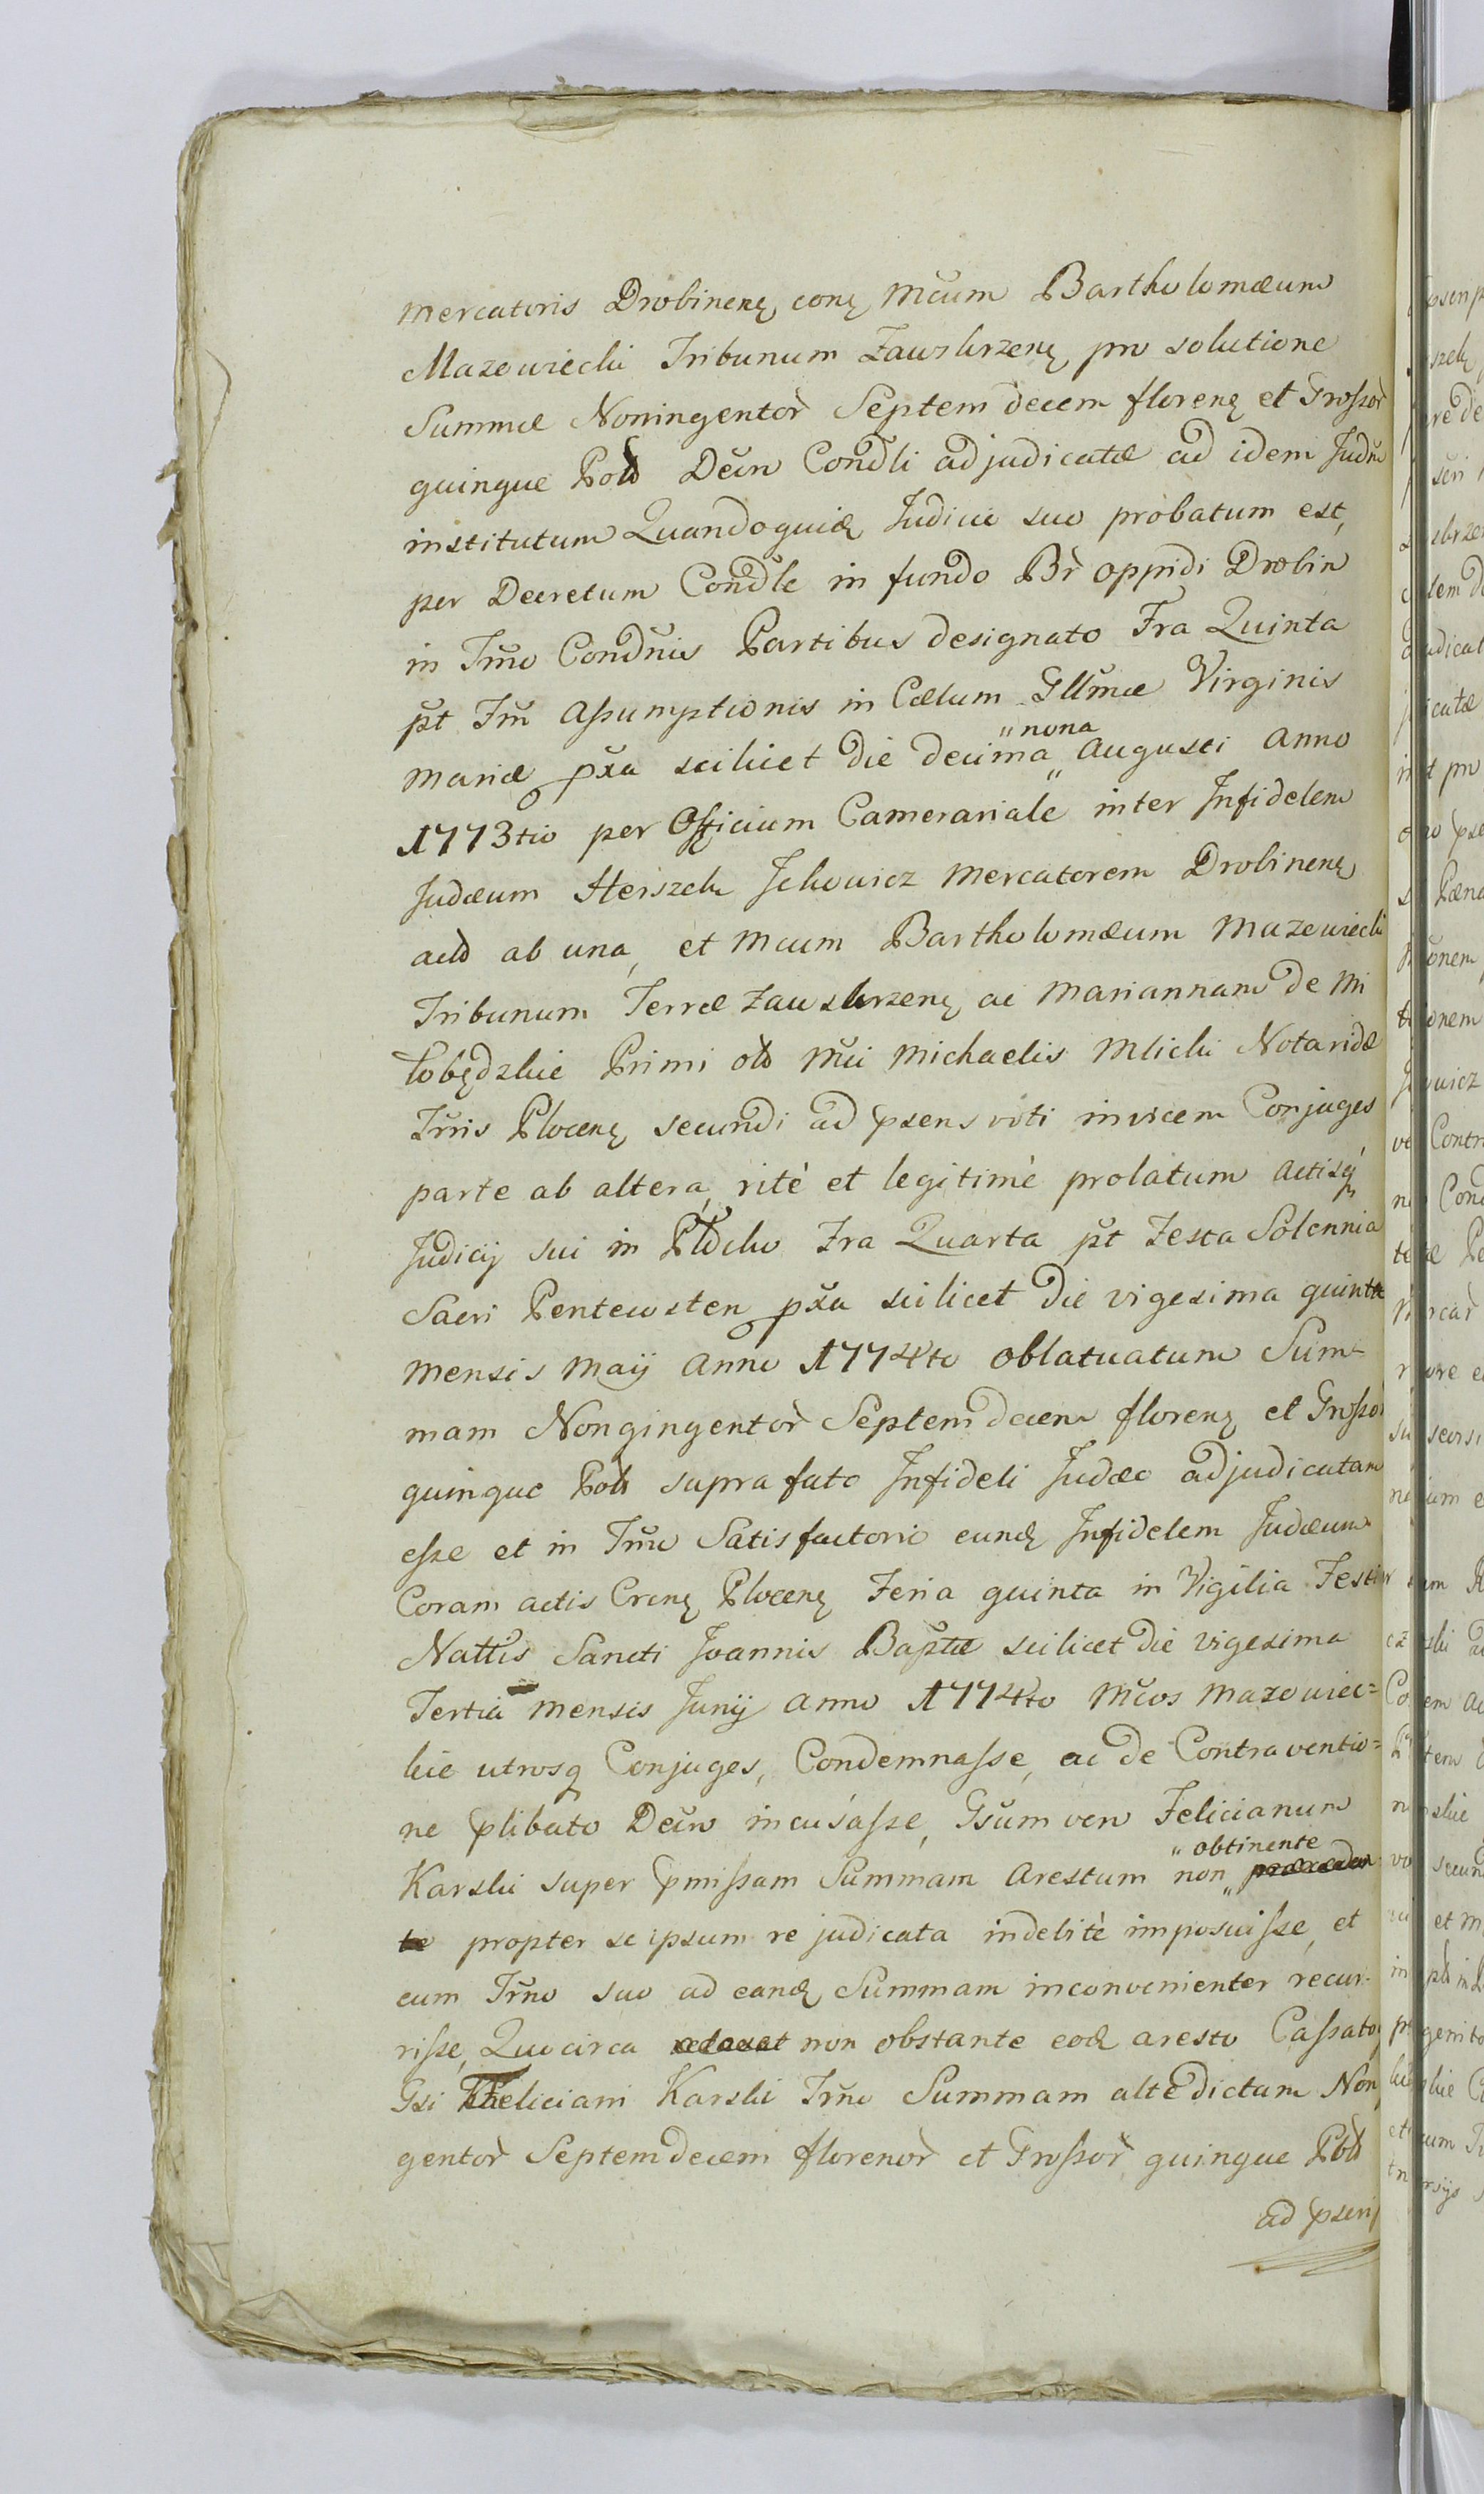 mercatoris Drobinenę conę Mcum Bartholomæum
Mazowiecki Tribunum Zawskrzenę pro solutione
Summæ Noningentor̀ Septem decem florenę et Grossor̀
quinque Pold Decrn Condli adjudicatæ ad idem Judm
institutum Quandoquidę Judicii suo probatum est,
per Decretum Condle in fundo Br̀ oppidi Drobin
in Trno Condnis Partibus designato Fra Quinta
pt Fm Assumptionis in Cælum Gllmæ Virginis
Mariæ pxa scilicet die decima „nona„ Augusti Anno
1773tio per Officium Camerariale inter Infidelem
Judæum Herszek Jckowicz Mercatorem Drobinenę
actd ab una, et Mcum Bartholomæum Mazowiecki
Tribunum Terræ Zawskrzenę ac Mariannam de Mi
Łobędzkie Primi ol Mci Michaelis Mlicki Notaridæ
Trris Plocenę secundi ad psens voti invicem Conjuges
parte ab altera, ritè et legitimè prolatum Actisq́
Judicij sui in Płocko Fra Quarta pt Festa Solennia
Sacri Pentecosten pxa scilicet die vigesima quinta
mensis Maij Anno 1774to oblatuatum Sum=
mam Nongingentor̀ Septem decem florenę et Grossor̀
quinque Pold supra fato Infideli Judæo adjudicatam
esse et in Trno Satisfactorio eundę Infidelem Judæum
Coram actis Crenę Plocenę Feria quinta in Vigilia Festi
Nattis Sancti Joannis Baptæ scilicet die vigesima
Tertia mensis Junij Anno 1774to Mcos Mazowiec=
kie utrosq Conjuges, Condemnasse, ac de Contraventio=
ne plibato Decrto incusasse, Gsum vero Felicianum
Karski super pmissam Summam Arestum non „obtinente„
te propter se ipsum re judicata indebitè imposuisse, et
cum Trno suo ad eandę Summam inconvenienter recur=
risse, Quocirca non obstante eodę aresto Cassato,
Gsi Feliciani Karski Trno Summam altè dictam Non
gentor̀ Septemdecem florenor̀ et Grossor̀ quinque Pold
ad psens